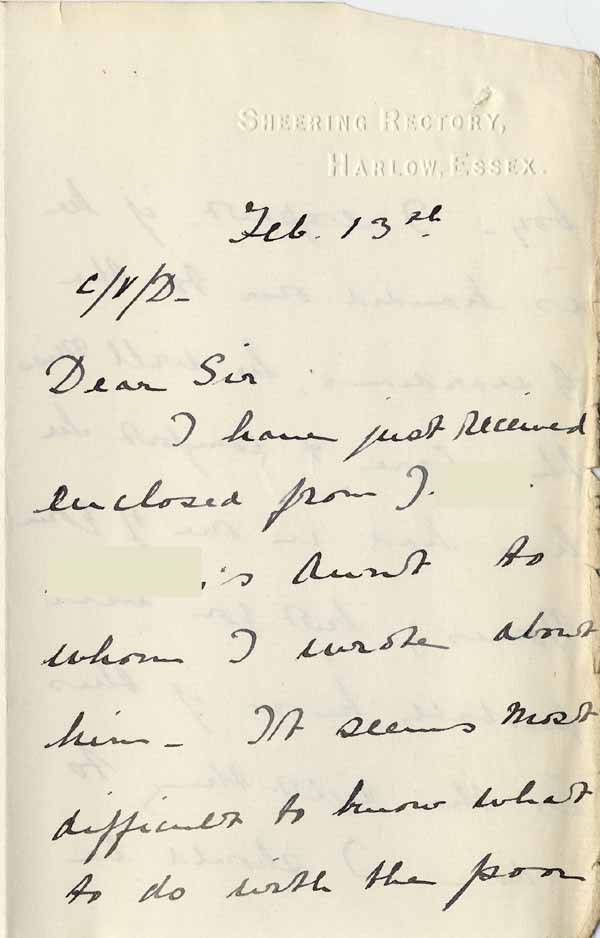 SHEERING RECTORY,
HARLOW, ESSEX.
Feb. 13th
C/V/D-
Dear Sir
I have just received
enclosed from J.
's Aunt to
whom I wrote about
him - It seems most
difficult to know what
to do with the poor